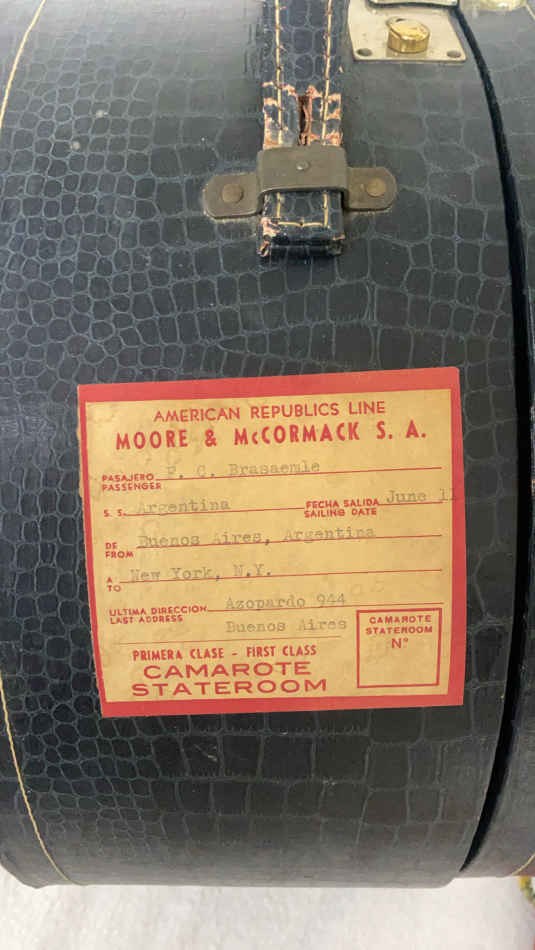 AMERICAN REPUBLICS LINE
MOORE & McCORMACK S. A.
PASAJERO P. C. Brasaemle
PASSENGER
S. S. Argentina FECHA SALIDA June 11
SAILING DATE
DE Buenos Aires, Argentina
FROM
A New York, N.Y.
TO
ULTIMA DIRECCION Azopardo 944
LAST ADDRESS Buenos Aires
PRIMERA CLASE - FIRST CLASS
CAMAROTE
STATEROOM
CAMAROTE
STATEROOM
Nº